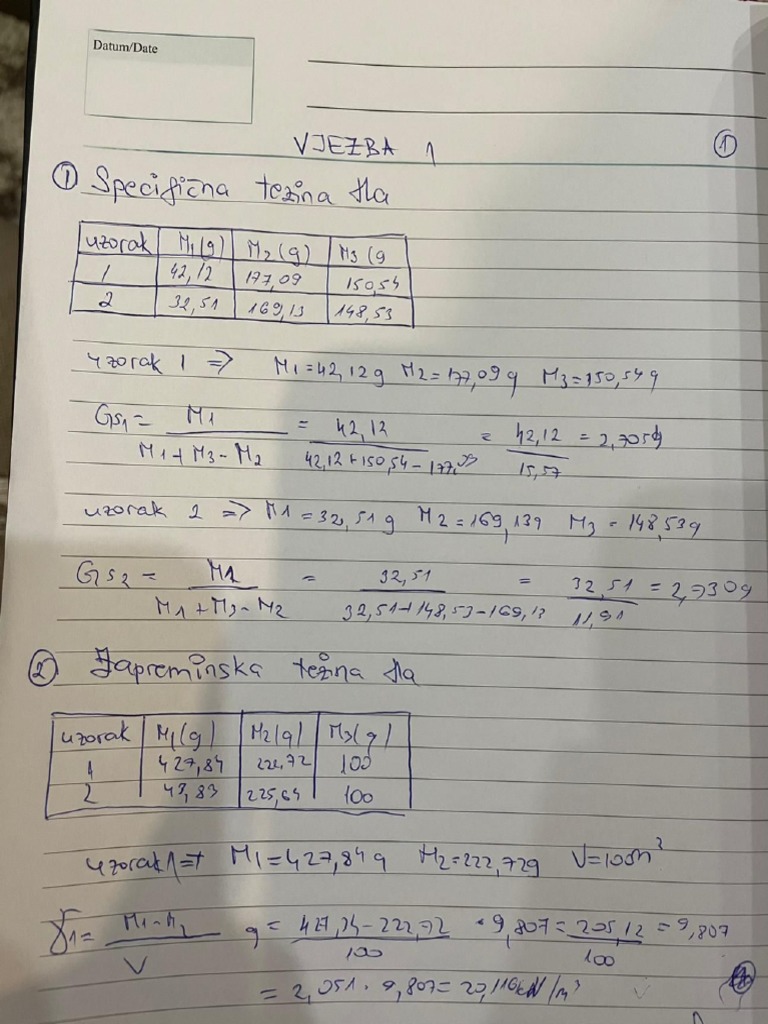 Datum/Date
VJEZBA 1
1
1 Specifična težina tla
uzorak M1(g) M2(g) M3(g
1 42,12 177,09 150,54
2 32,51 169,13 148,53
uzorak 1 => M1=42,12g M2=177,09g M3=150,54g
Gs1= M1 / M1+M3-M2 = 42,12 / 42,12+150,54-177,09 = 42,12 / 15,57 = 2,7054
uzorak 2 => M1=32,51g M2=169,13g M3=148,53g
Gs2= M1 / M1+M3-M2 = 32,51 / 32,51+148,53-169,13 = 32,51 / 11,91 = 2,730g
2 Zapreminska težina tla
uzorak M1(g) M2(g) M3(g)
1 427,84 222,72 100
2 43,83 225,64 100
uzorak 1=> M1=427,84g M2=222,72g V=100m³
γ1= M1-M2 / V g= 427,84-222,72 / 100 · 9,807= 205,12 / 100 = 9,807
= 2,051 · 9,807= 20,116kN/m³